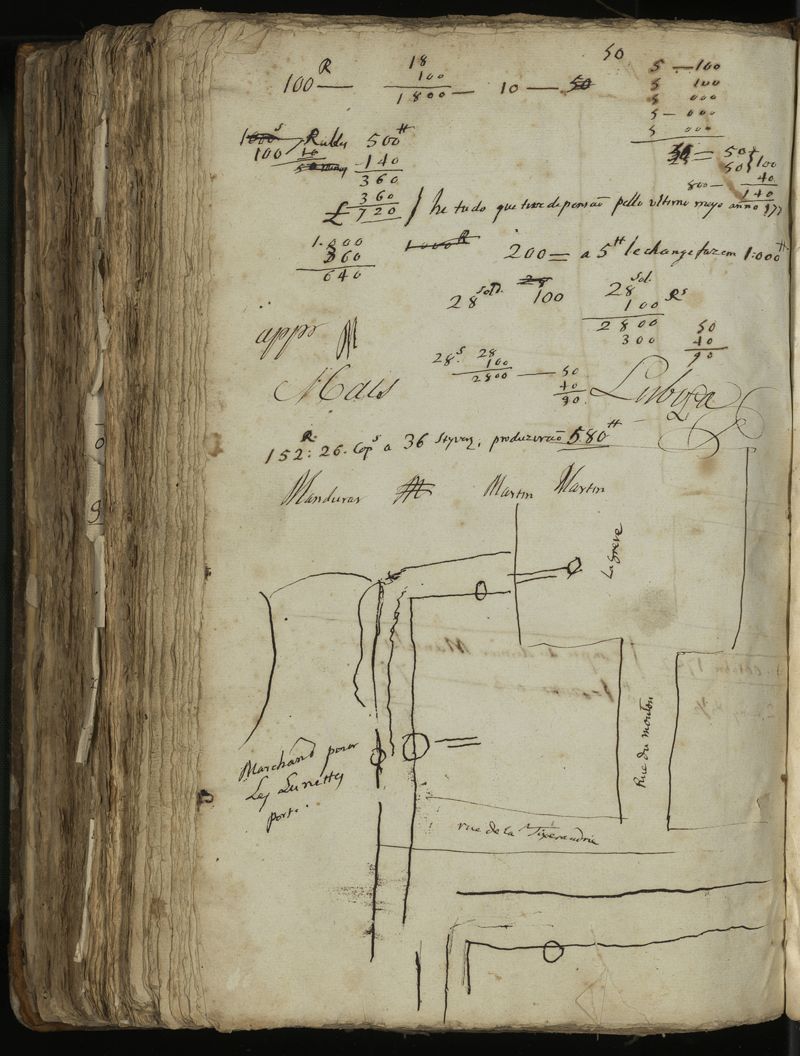 50
100 R — 18 — 10 — 50
100
1800
5 — 100
5 100
5 000
5 — 000
5 000
1000 s Rubles 500 ₶
100 10 140
360
360
£ 720 / he tudo que tive de pensaõ pello ultimo mayo anno 977
= 50
50 } 100
800 — 40
140
1.000
360
640
1000 R
200 = a 5 ₶ le change fazem 1:000 ₶
28 sold. 28
100
28 sol.
100 Rs
2800
300
50
40
90
appr M
28 s. 28
100
2800 — 50
40
90
Mais
Lisboa
152 R: 26. Cops a 36 Styvers, produziraõ 580 ₶
Manduras M Martin Martin
La Greve
Rue du mouton
Marchand pour
Les Lunettes
port.
rue de la Tixerandrie